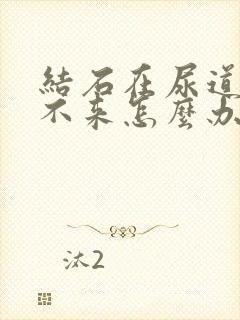 結石在尿道
不來怎麼办
汰2